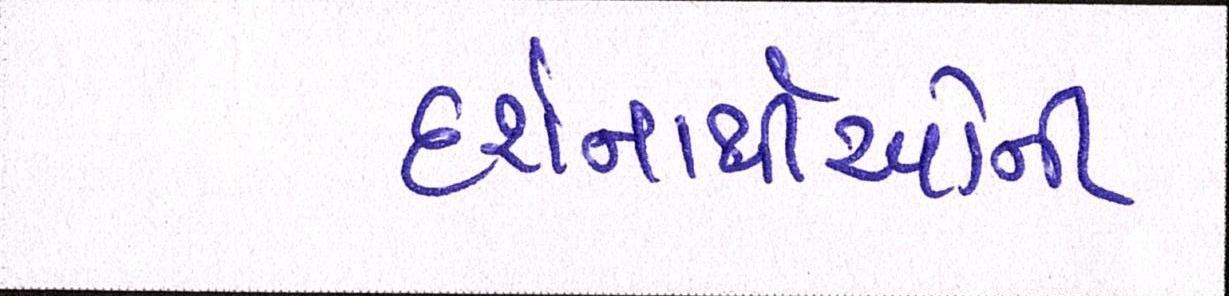 દર્શનાર્થીઓની